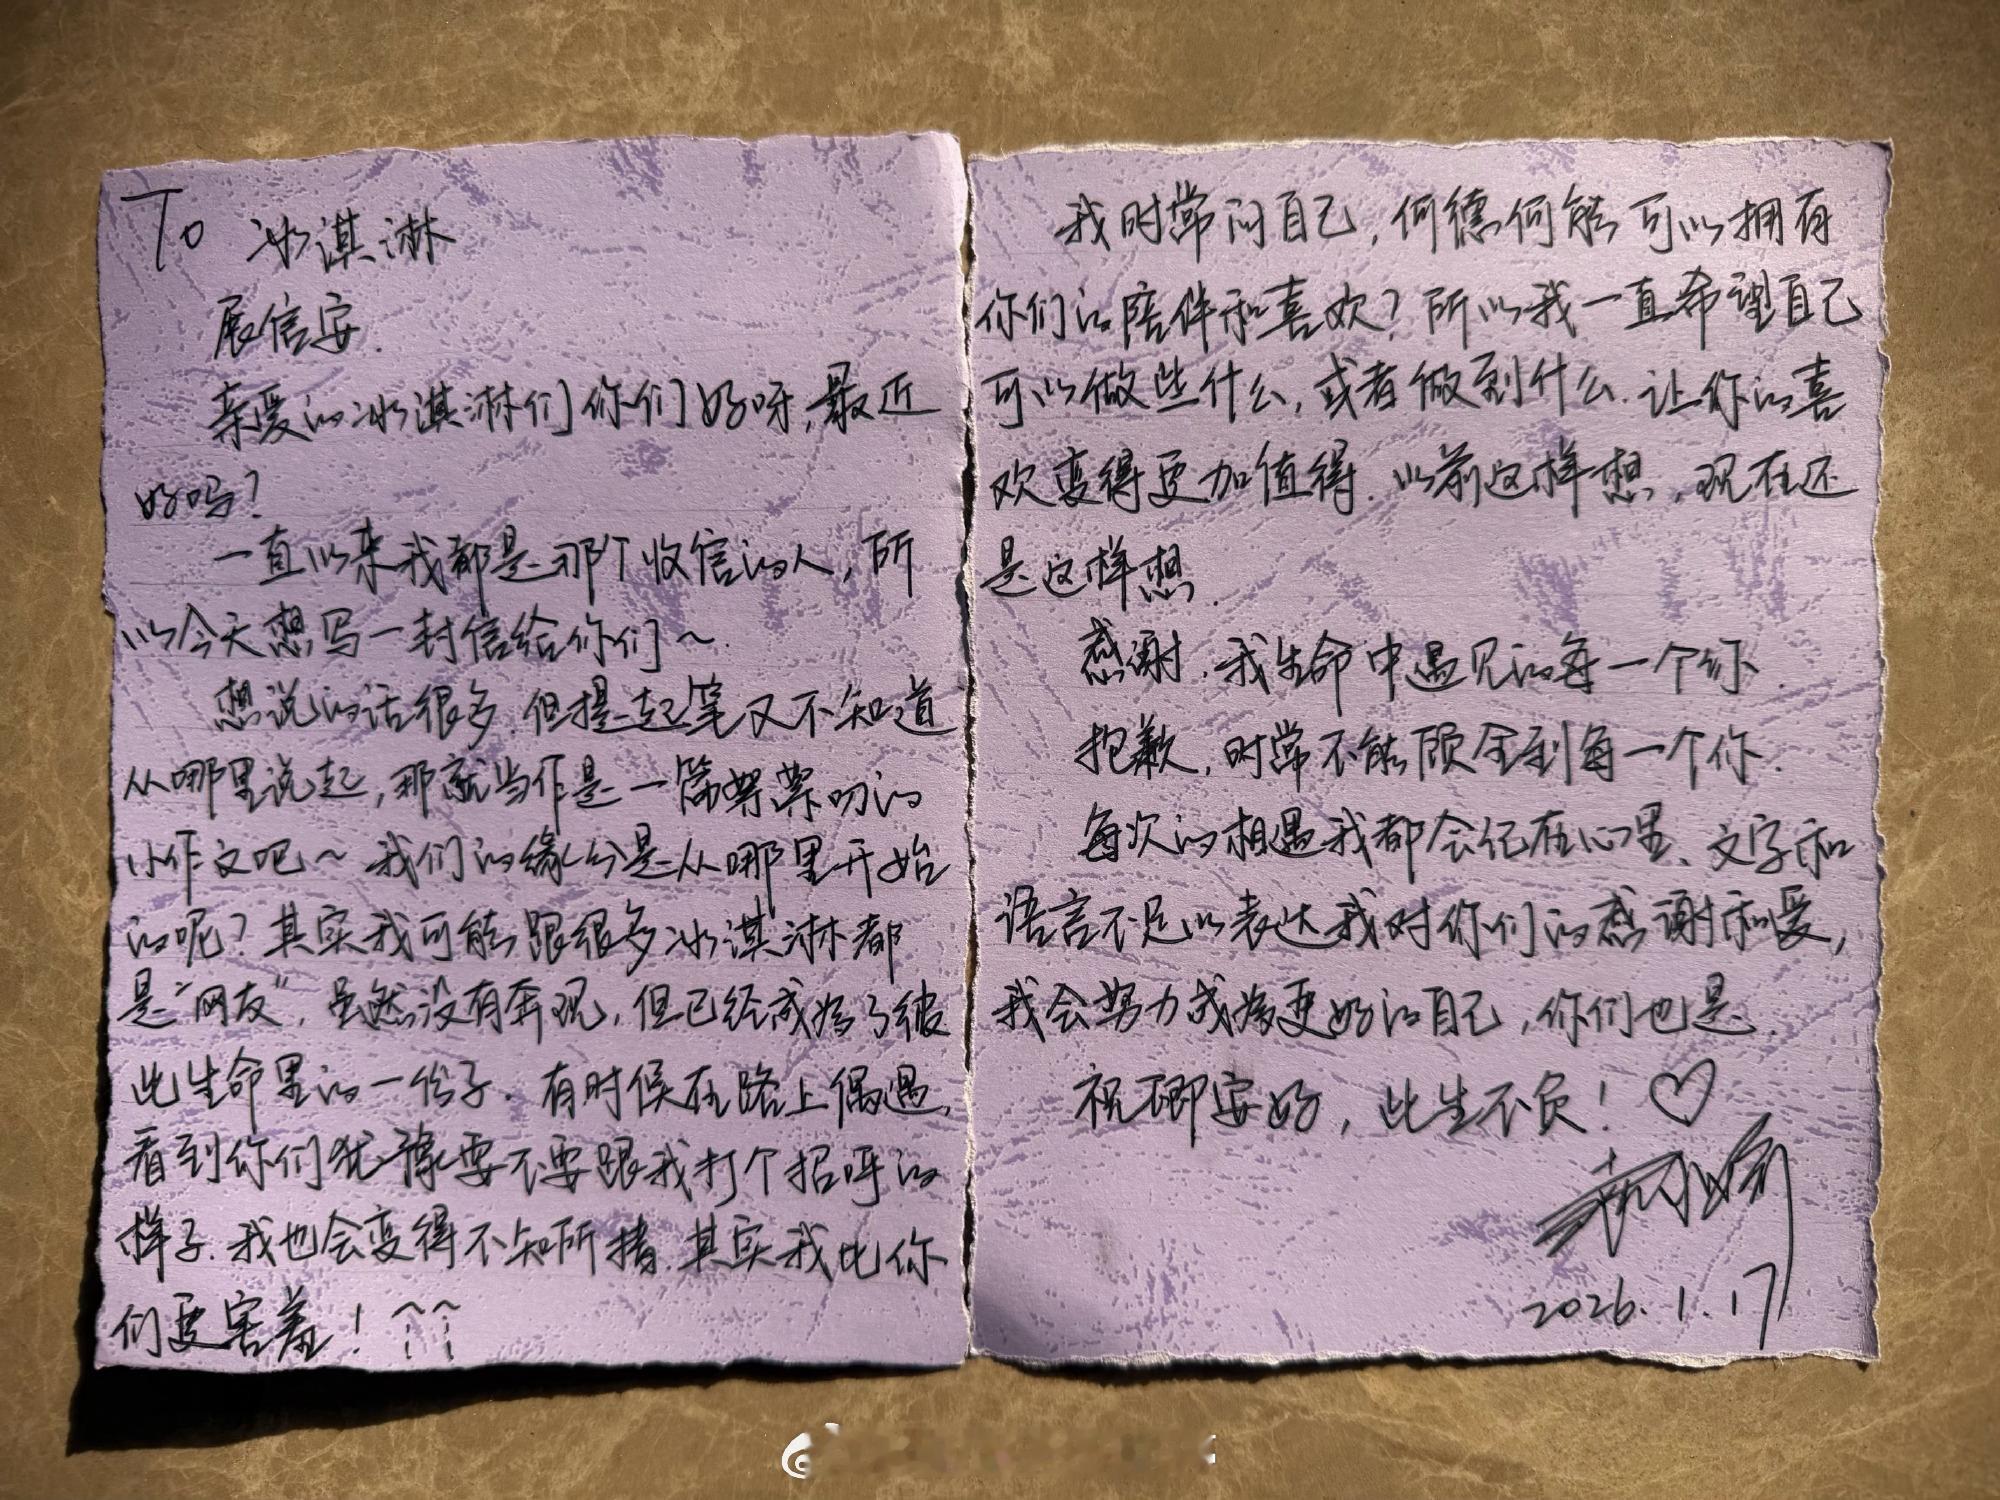 To 冰淇淋
展信安.
亲爱的冰淇淋们你们好呀,最近
好吗?
一直以来我都是那个收信的人,所
以今天想写一封信给你们~
想说的话很多.但提起笔又不知道
从哪里说起,那就当作是一篇絮絮叨叨的
小作文吧~ 我们的缘分是从哪里开始
的呢?其实我可能跟很多冰淇淋都
是“网友”,虽然没有奔现,但已经成为了彼
此生命里的一份子.有时候在路上偶遇,
看到你们犹豫要不要跟我打个招呼的
样子.我也会变得不知所措.其实我比你
们更害羞!
我时常问自己,何德何能可以拥有
你们的陪伴和喜欢?所以我一直希望自己
可以做些什么,或者做到什么.让你的喜
欢变得更加值得.以前这样想,现在还
是这样想.
感谢,我生命中遇见的每一个你.
抱歉,时常不能顾全到每一个你.
每次的相遇我都会记在心里、文字和
语言不足以表达我对你们的感谢和爱,
我会努力成为更好的自己,你们也是.
祝卿安好,此生不负!♡
2026.1.17